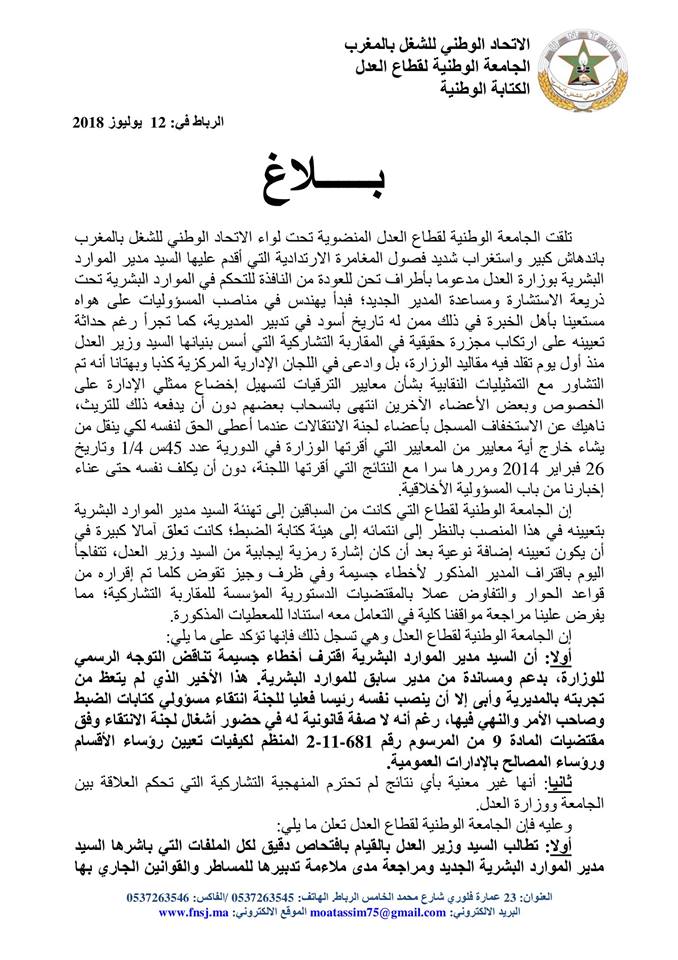 الاتحاد الوطني للشغل بالمغرب
الجامعة الوطنية لقطاع العدل
الكتابة الوطنية
الرباط في: 12 يوليوز 2018
بـــــلاغ
تلقت الجامعة الوطنية لقطاع العدل المنضوية تحت لواء الاتحاد الوطني للشغل بالمغرب
باندهاش كبير واستغراب شديد فصول المغامرة الارتدادية التي أقدم عليها السيد مدير الموارد
البشرية بوزارة العدل مدعوما بأطراف تحن للعودة من النافذة للتحكم في الموارد البشرية تحت
ذريعة الاستشارة ومساعدة المدير الجديد؛ فبدأ يهندس في مناصب المسؤوليات على هواه
مستعينا بأهل الخبرة في ذلك ممن له تاريخ أسود في تدبير المديرية، كما تجرأ رغم حداثة
تعيينه على ارتكاب مجزرة حقيقية في المقاربة التشاركية التي أسس بنيانها السيد وزير العدل
منذ أول يوم تقلد فيه مقاليد الوزارة، بل وادعى في اللجان الإدارية المركزية كذبا وبهتانا أنه تم
التشاور مع التمثيليات النقابية بشأن معايير الترقيات لتسهيل إخضاع ممثلي الإدارة على
الخصوص وبعض الأعضاء الآخرين انتهى بانسحاب بعضهم دون أن يدفعه ذلك للتريث،
ناهيك عن الاستخفاف المسجل بأعضاء لجنة الانتقالات عندما أعطى الحق لنفسه لكي ينقل من
يشاء خارج أية معايير من المعايير التي أقرتها الوزارة في الدورية عدد 45س 1/4 وتاريخ
26 فبراير 2014 ومررها سرا مع النتائج التي أقرتها اللجنة، دون أن يكلف نفسه حتى عناء
إخبارنا من باب المسؤولية الأخلاقية.
إن الجامعة الوطنية لقطاع التي كانت من السباقين إلى تهنئة السيد مدير الموارد البشرية
بتعيينه في هذا المنصب بالنظر إلى انتمائه إلى هيئة كتابة الضبط؛ كانت تعلق آمالا كبيرة في
أن يكون تعيينه إضافة نوعية بعد أن كان إشارة رمزية إيجابية من السيد وزير العدل، تتفاجأ
اليوم باقتراف المدير المذكور لأخطاء جسيمة وفي ظرف وجيز تقوض كلما تم إقراره من
قواعد الحوار والتفاوض عملا بالمقتضيات الدستورية المؤسسة للمقاربة التشاركية؛ مما
يفرض علينا مراجعة مواقفنا كلية في التعامل معه استنادا للمعطيات المذكورة.
إن الجامعة الوطنية لقطاع العدل وهي تسجل ذلك فإنها تؤكد على ما يلي:
أولا: أن السيد مدير الموارد البشرية اقترف أخطاء جسيمة تناقض التوجه الرسمي
للوزارة، بدعم ومساندة من مدير سابق للموارد البشرية. هذا الأخير الذي لم يتعظ من
تجربته بالمديرية وأبى إلا أن ينصب نفسه رئيسا فعليا للجنة انتقاء مسؤولي كتابات الضبط
وصاحب الأمر والنهي فيها، رغم أنه لا صفة قانونية له في حضور أشغال لجنة الانتقاء وفق
مقتضيات المادة 9 من المرسوم رقم 681-11-2 المنظم لكيفيات تعيين رؤساء الأقسام
ورؤساء المصالح بالإدارات العمومية.
ثانيا: أنها غير معنية بأي نتائج لم تحترم المنهجية التشاركية التي تحكم العلاقة بين
الجامعة ووزارة العدل.
وعليه فإن الجامعة الوطنية لقطاع العدل تعلن ما يلي:
أولا: تطالب السيد وزير العدل بالقيام بافتحاص دقيق لكل الملفات التي باشرها السيد
مدير الموارد البشرية الجديد ومراجعة مدى ملاءمة تدبيرها للمساطر والقوانين الجاري بها
العنوان: 23 عمارة فلوري شارع محمد الخامس الرباط. الهاتف: 0537263545 /الفاكس: 0537263546
البريد الالكتروني: moatassim75@gmail.com الموقع الالكتروني: www.fnsj.ma